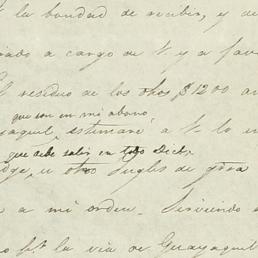 la bondad de recibir, y de
a cargo de V. y a favo
residuo de los otros $1200 a
que son en mi abono,
yaquil, estimaré a V. lo
que debe salir en todo Dicbe.
u otros Ingles de
a mi orden. Sirviendo
la via de Guayaquil